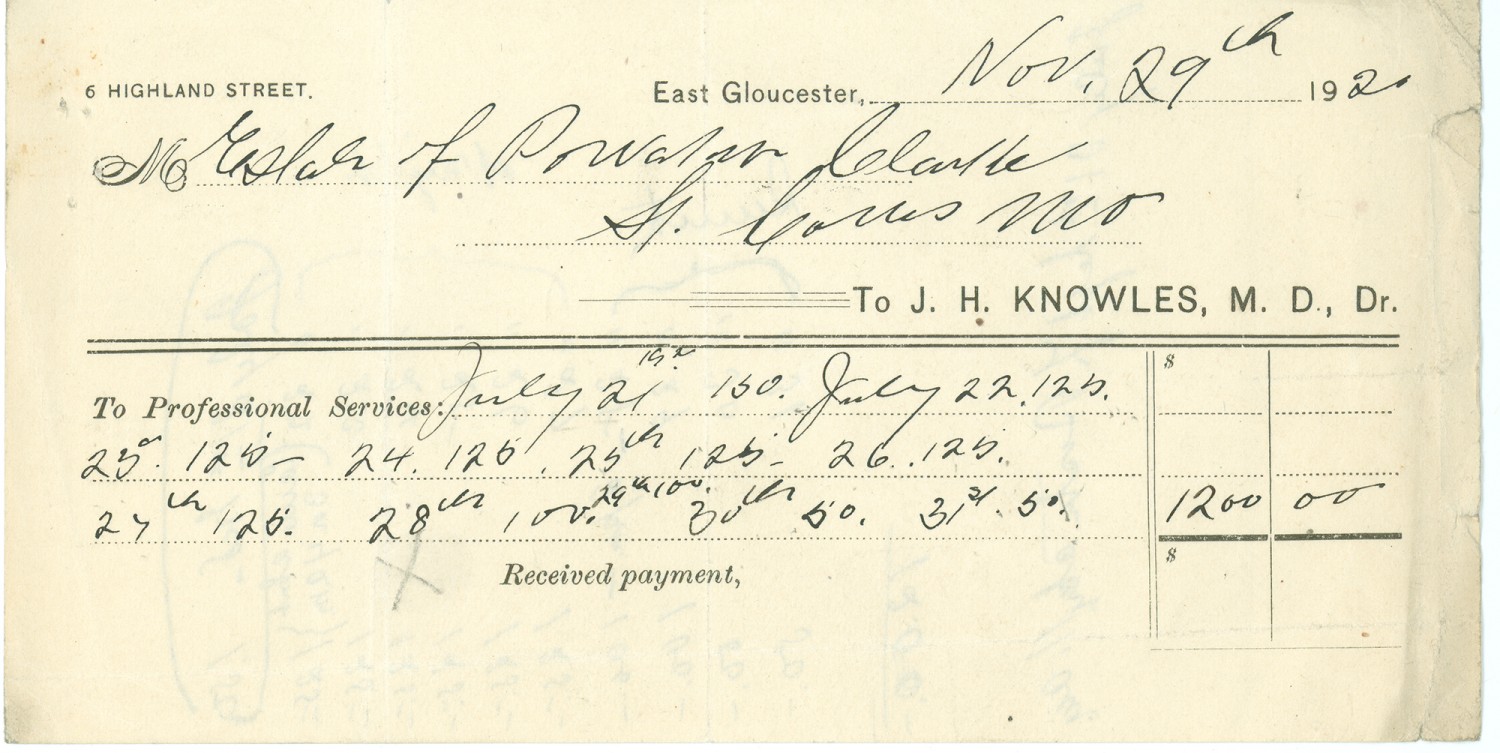 Nov. 29th
6 HIGHLAND STREET. East Gloucester, 192
M Estate of Powhatan Clarke
St. Louis Mo
To J. H. KNOWLES, M. D., Dr.
$
To Professional Services: July 21 150. July 22. 125.
23d. 125– 24. 125. 25th 125– 26. 125.
27th 125. 28th 100. 29th 100. 30th 50. 31st. 50. 1200 00
$
Received payment,